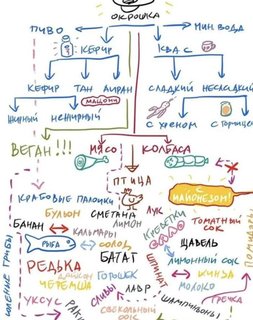 ОКРОШКА
ПИВО МИН ВОДА
КЕФИР КВАС
КЕФИР ТАН АЙРАН СЛАДКИЙ НЕСЛАДКИЙ
МАЦОНИ
ЖИРНЫЙ НЕЖИРНЫЙ С ХРЕНОМ С ГОРЧИЦЕЙ
ВЕГАН!!! МЯСО КОЛБАСА
ПТИЦА
С МАЙОНЕЗОМ!
КРАБОВЫЕ ПАЛОЧКИ
БУЛЬОН СМЕТАНА ЛУК ТОМАТНЫЙ СОК
БАНАН ЛИМОН КРЕВЕТКИ
КАЛЬМАРЫ ЩАВЕЛЬ
РЫБА СОЛОД
РЕДЬКА БАТАТ ЛИМОННЫЙ СОК
ДАЙКОН ГОРОШЕК ШПИНАТ КИНЗА
ЧЕРЕМША МОЛОКО
УКСУС РАКИ СЛИВЫ ЛАВР ГРЕЧКА
СВЕКОЛЬНЫЙ СОК ШАМПИНЬОНЫ
СОЛЕНИЕ ГРИБЫ
ПОМИДОРЫ